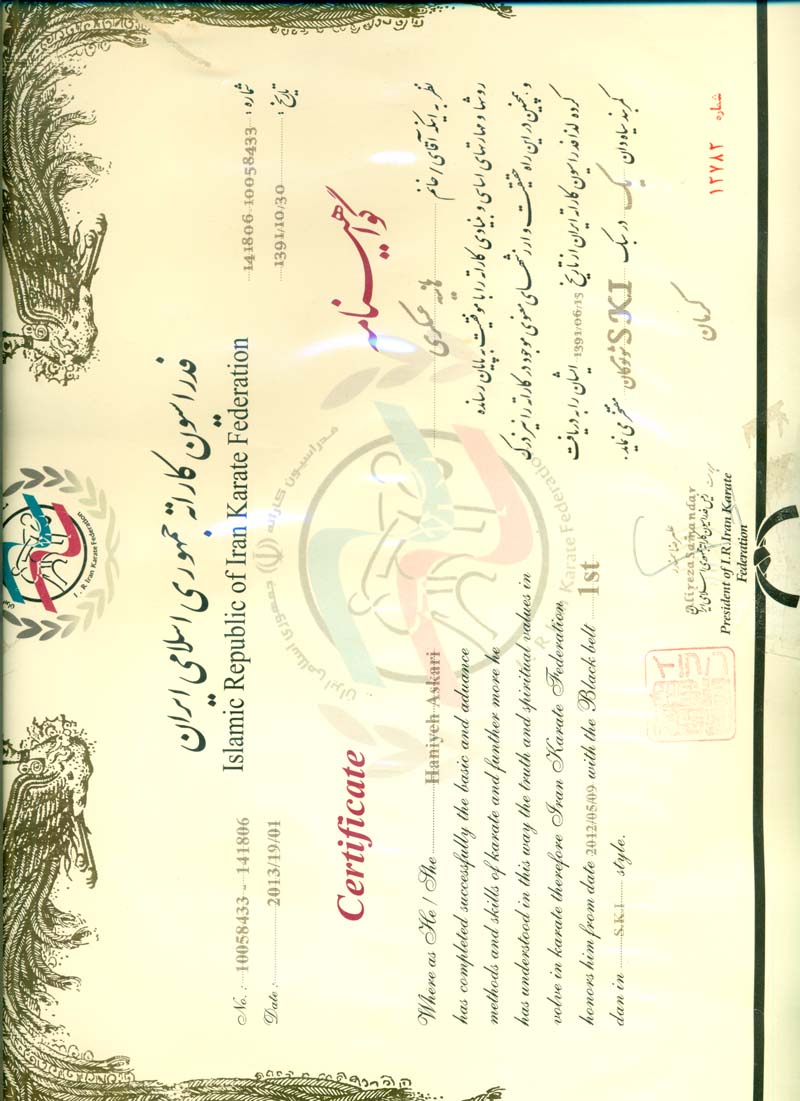 فدراسیون کاراته جمهوری اسلامی ایران
Islamic Republic of Iran Karate Federation
I . R Iran Karate Federation
No.: 10058433 - 141806
Date: 2013/19/01
Certificate
Where as He / She Haniyeh Askari
has completed successfully the basic and aduance
methods and skills of karate and funther more he
has understood in this way the truth and spiritual values in
volve in karate therefore Iran Karate Federation
honors him from date 2012/05/09 with the Black belt 1st
dan in S.K.I style.
شماره : 141806-10058433
تاریخ : 1391/10/30
گواهینامه
نظر به اینکه آقای / خانم هانیه عسکری
روشها و مهارتهای اساسی و بنیادی کاراته را با موفقیت به پایان رسانده
و همچنین در این راه حقیقت و ارزشهای معنوی موجود در کاراته را نیز درک
کرده لذا فدراسیون کاراته ایران از تاریخ 1391/06/15 ایشان را به دریافت
کمربند سیاه دان یک در سبک S.K.I شوتوکان مفتخر می نماید.
کرمان
علیرضا سمندر
Alireza Samandar
رئیس فدراسیون کاراته جمهوری اسلامی ایران
President of I.R.Iran Karate
Federation
شماره ۱۲۷۸۲
فدراسیون کاراته جمهوری اسلامی ایران
Karate Federation